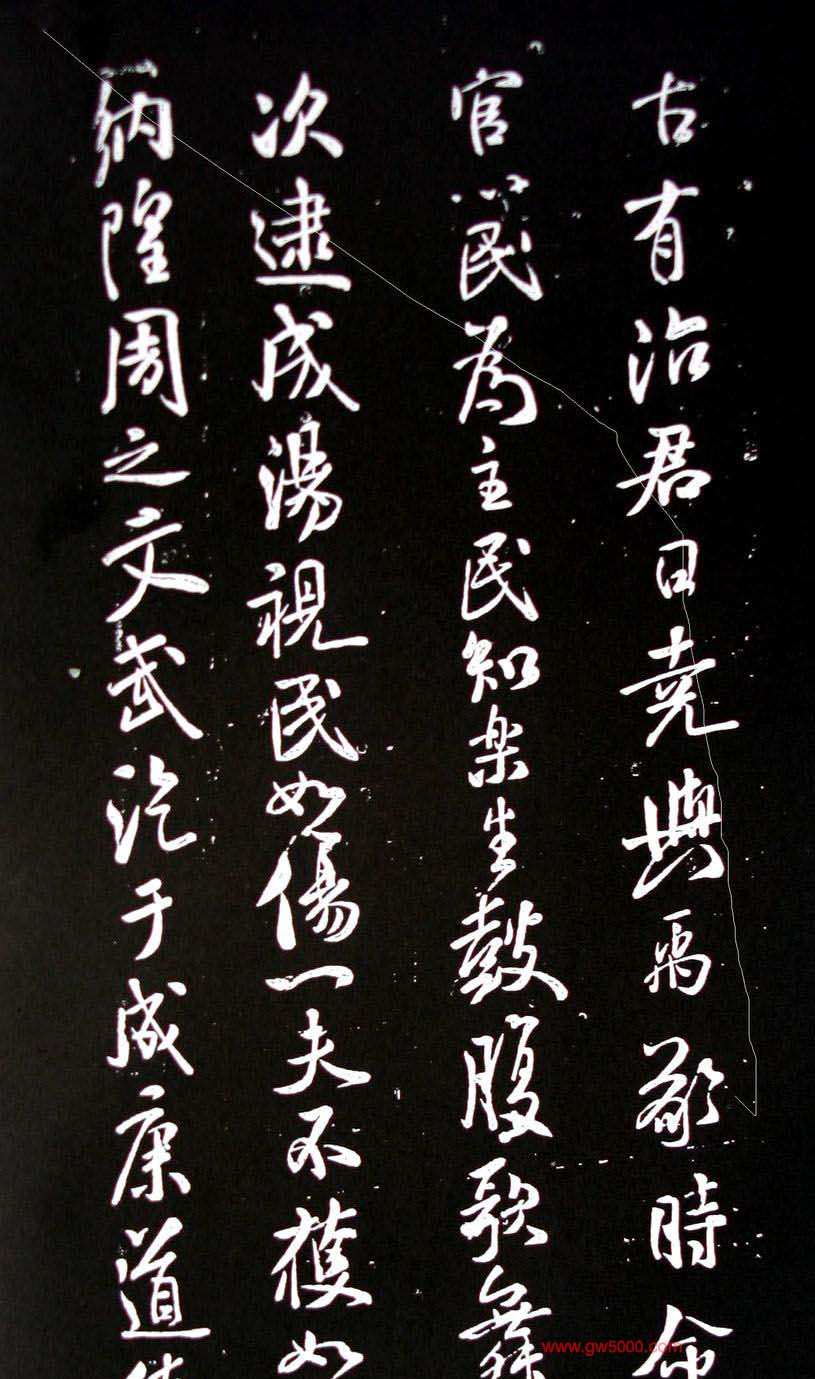 古有治君曰堯與禹敬時命
官以民為主民知樂生鼓腹歌舞
次逮成湯視民如傷一夫不獲如
納隍周之文武汔于成康道
www.gw5000.com